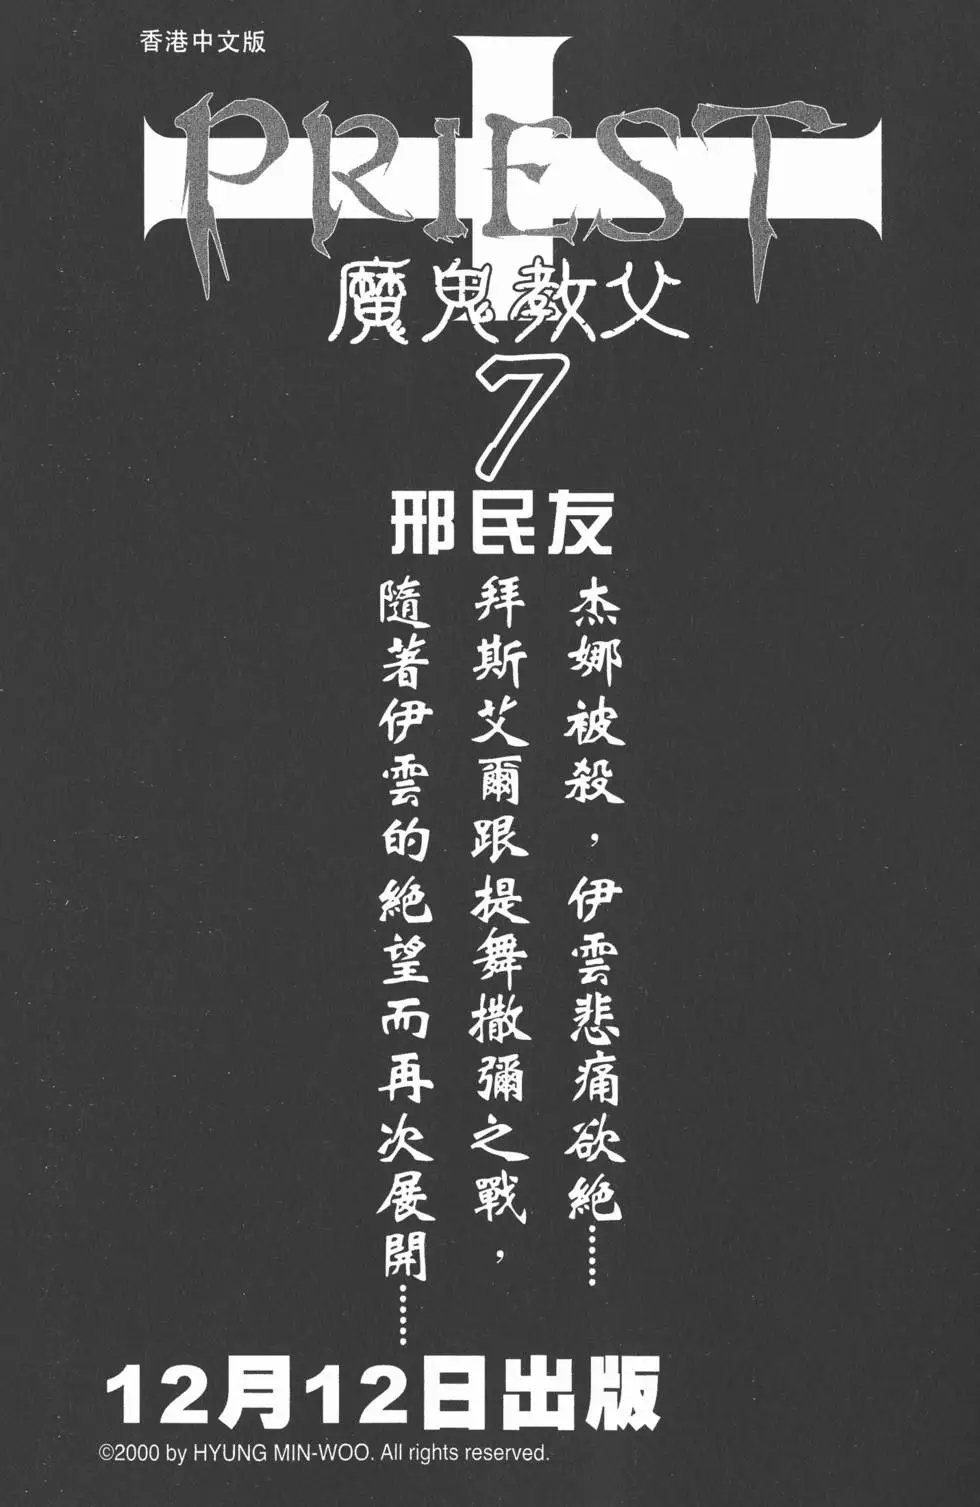 香港中文版
PRIEST
魔鬼教父
7
邢民友
杰娜被殺，伊雲悲痛欲絕……
拜斯艾爾跟提舞撒彌之戰，
隨著伊雲的絕望而再次展開……
12月12日出版
©2000 by HYUNG MIN-WOO. All rights reserved.